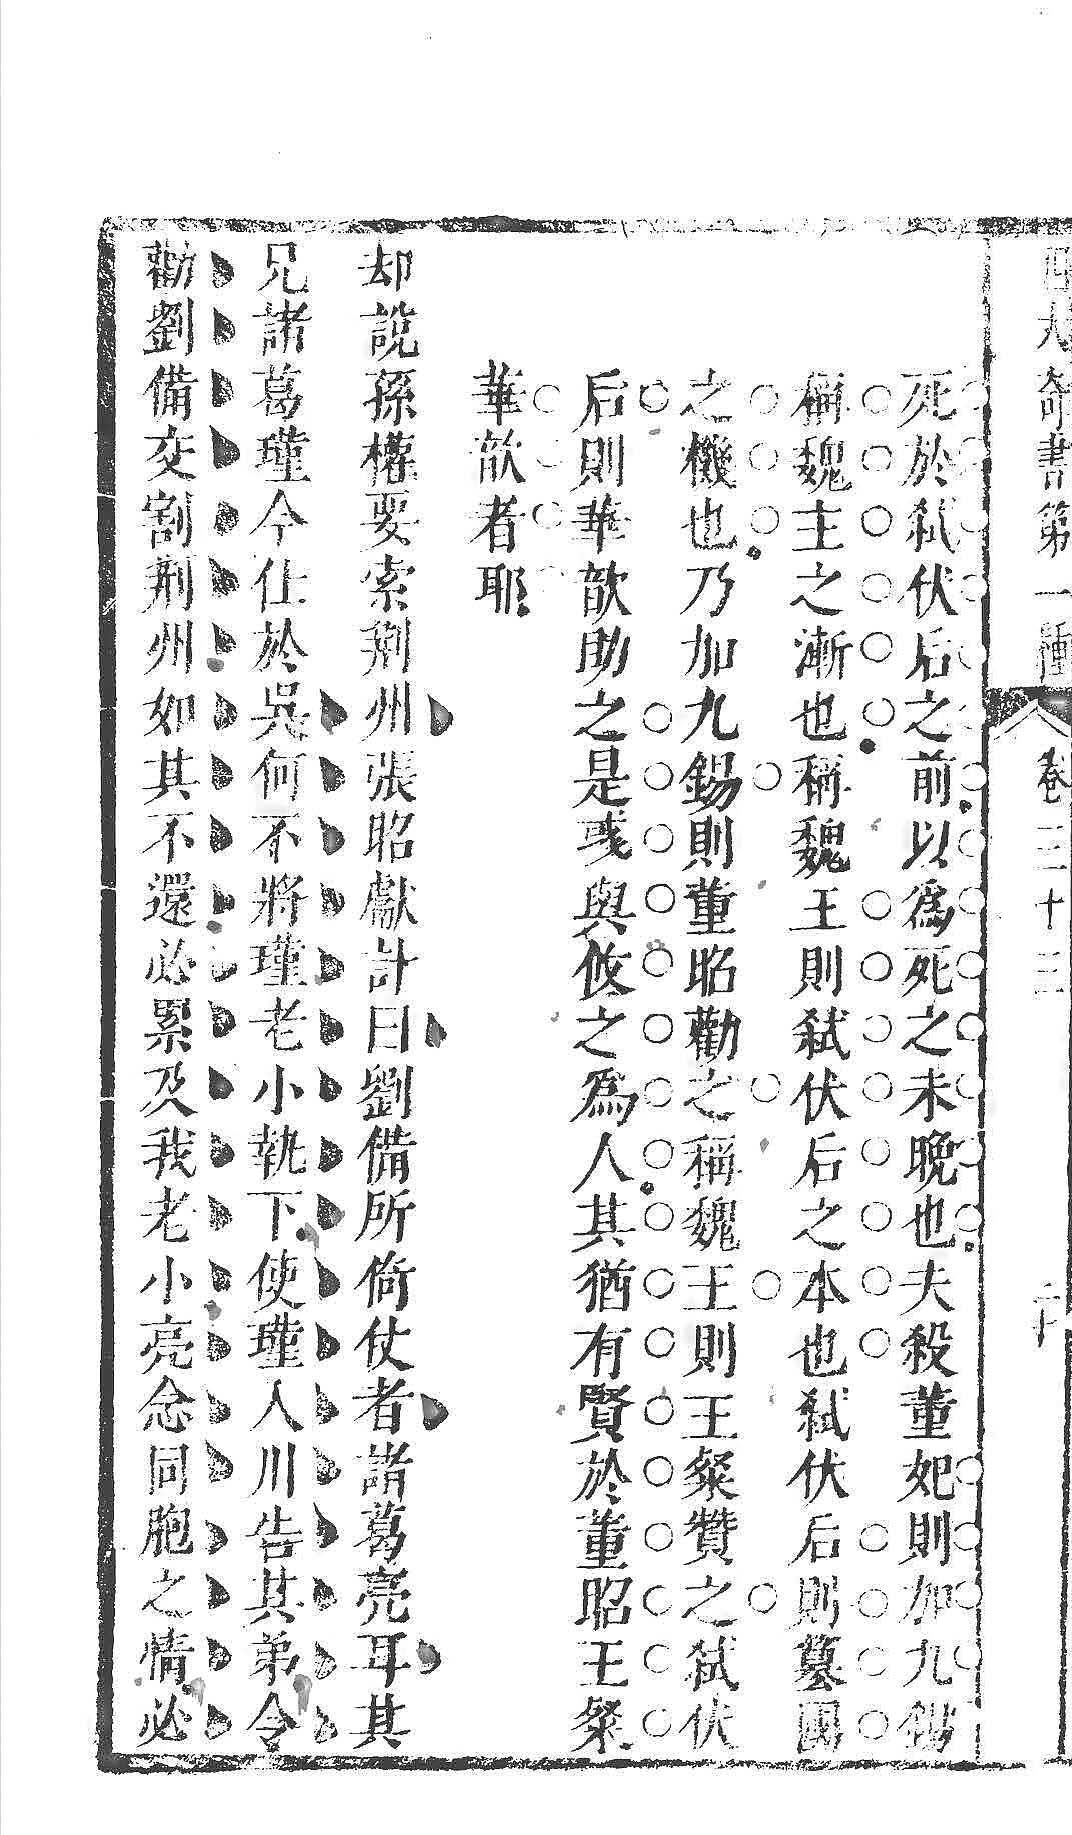 四大奇書第一種 卷三十三 二十
死於弑伏后之前以爲死之未晚也夫殺董妃則加九錫
稱魏主之漸也稱魏王則弑伏后之本也弑伏后則篡國
之機也乃加九錫則董昭勸之稱魏王則王粲贊之弑伏
后則華歆助之是彧與攸之爲人其猶有賢於董昭王粲
華歆者耶
却說孫權要索荆州張昭獻計曰劉備所倚仗者諸葛亮耳其
兄諸葛瑾今仕於吳何不將瑾老小執下使瑾入川告其弟令
勸劉備交割荆州如其不還必累及我老小亮念同胞之情必